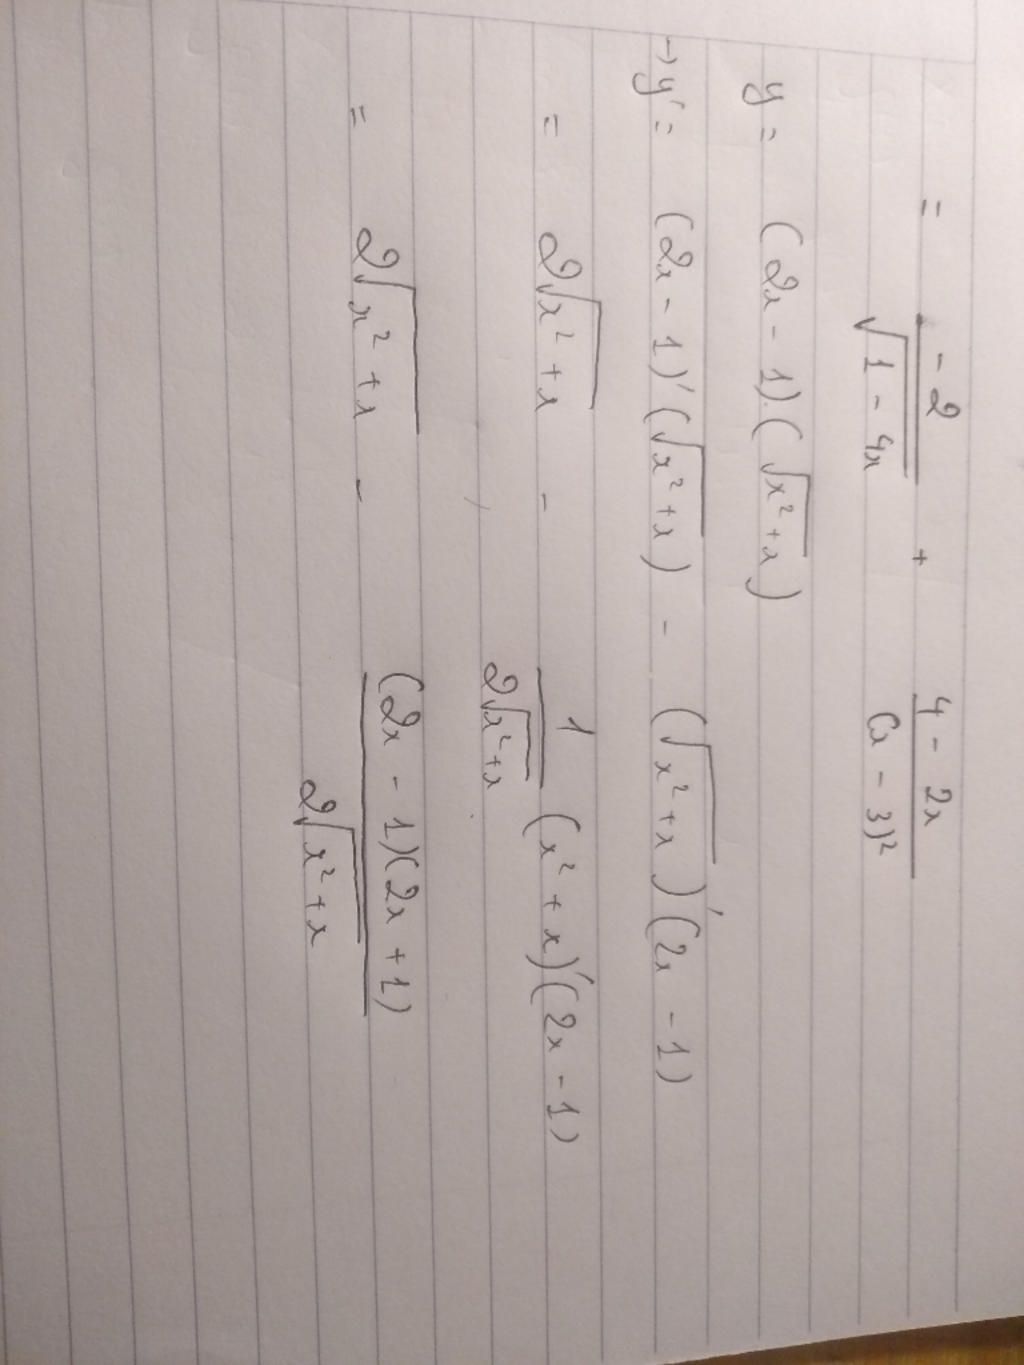 = -2/√(1 - 4x) + (4 - 2x)/(x - 3)²
y = (2x - 1).(√(x² + x))
→ y' = (2x - 1)'(√(x² + x)) - (√(x² + x))'(2x - 1)
= 2√(x² + x) - 1/(2√(x² + x)) (x² + x)'(2x - 1)
= 2√(x² + x) - (2x - 1)(2x + 1)/(2√(x² + x))